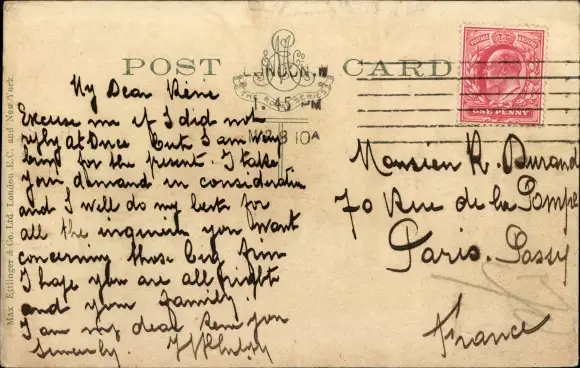 POST CARD
THE ROYAL SERIES
LONDON. W
1. 45 PM
MAR 8 10A
ONE PENNY
Max Ettlinger & Co. Ltd. London E.C. and New York
My Dear Réné
Excuse me if I did not
reply at once but I am very
busy for the present. I take
your demand in consideration
and I well do my best for
all the inquiries you want
concerning those big firm
I hope you are all right
and your family.
I am my dear Réné your
Sincerely.
Monsieur R. Durand
70 Rue de la Pompe
Paris. Passy
France